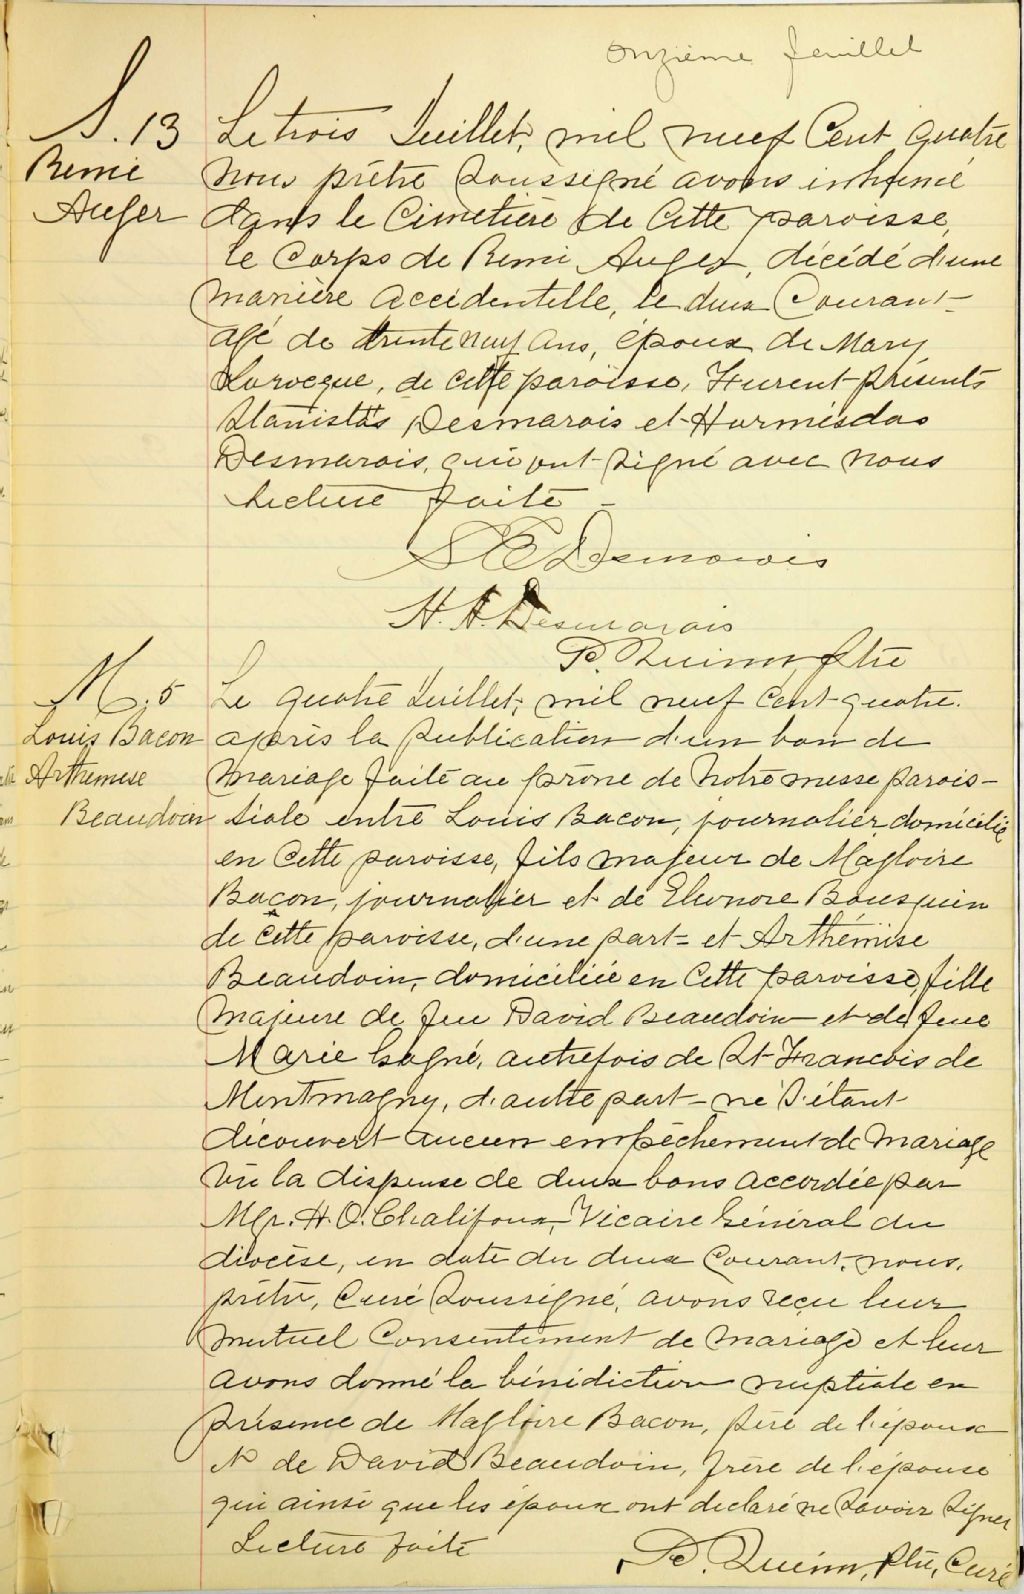 onzième feuillet
S. 13
Remi
Auger
Le trois Juillet, mil neuf Cent quatre
nous prêtre soussigné avons inhumé
dans le Cimetière de Cette paroisse,
le Corps de Remi Auger, décédé d'une
manière accidentelle, le deux Courant
agé de trente neuf ans, époux de Mary
Larocque, de cette paroisse, Furent présents
Stanislas Desmarais et Hormisdas
Desmarais, qui ont signé avec nous
Lecture faite -
S E Desmarais
H. A. Desmarais
P. Quinn, Ptre
M. 5
Louis Bacon
Arthemese
Beaudoin
Le quatre Juillet, mil neuf cent quatre.
après la publication d'un ban de
mariage faite au prône de notre messe parois-
siale entre Louis Bacon, journalier, domicilié
en Cette paroisse, fils majeur de Magloire
Bacon, journalier et de Eleonore Bousquin
de cette paroisse, d'une part et Arthémise
Beaudoin, domiciliée en Cette paroisse, fille
majeure de feu David Beaudoin et de feue
Marie Gagné, autrefois de St Francois de
Montmagny, d'autre part - ne s'étant
découvert aucun empêchement de mariage
vu la dispense de deux bans accordée par
Mgr. H. O. Chalifoux, Vicaire Général du
diocèse, en date du deux Courant, nous,
prêtre, Curé Soussigné, avons reçu leur
mutuel Consentement de mariage et leur
avons donné la bénédiction nuptiale en
présence de Magloire Bacon, père de l'époux
et de David Beaudoin, frère de l'épouse
qui ainsi que les époux ont declaré ne savoir signer
Lecture faite
P. Quinn, Ptre, Curé